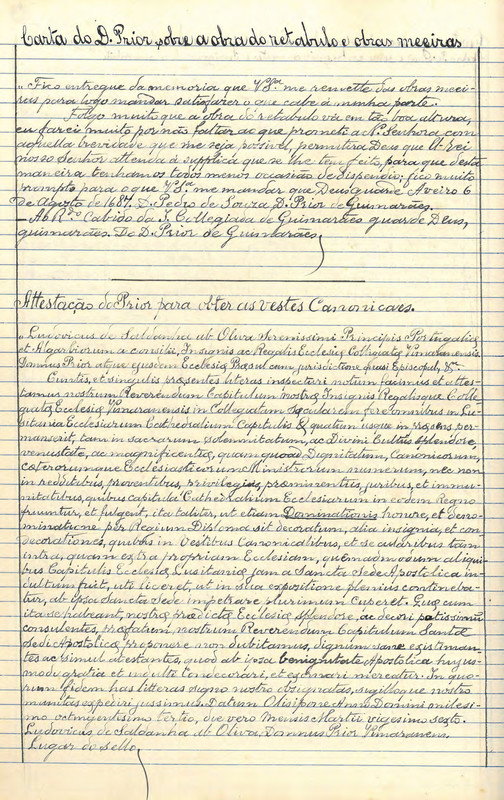 Carta do D. Prior, sobre a obra do retabulo e obras meeiras
"Fico entregue da memoria que V.Sª me remette das obras meei-
reis para logo mandar satisfazer o que cabe á minha parte.
Folgo muito que a obra do retabulo vá em tão boa altura,
eu farei muito por não faltar ao que prometi a N. Senhora com
aquella brevidade que me seja possivel, permittira Deus que El-rei
nosso Senhor attenda á supplica que se lhe tem feito, para que desta
maneira tenhamos todos menos occasião de dispendio; fico muito
prompto para o que V.Sª me mandar que Deus guarde Aveiro 6
de Agosto de 1687. D. Pedro de Souza, D. Prior de Guimarães.
— Ao R.do Cabido da I. Collegiada de Guimarães guarde Deus,
guimarães. De D. Prior de Guimarães
Attestação do Prior para obter as vestes Canonicaes.
"Ludovicus de Saldanha ab Oliva Serenissimi Principis Portugaliæ
et Algarbiorum a consiliis, Insignis ac Regalis Ecclesiæ Collegiatæ Vimaranensis
Domnus Prior atque ejusdem Ecclesiæ Præsul cum jurisdictione quasi Episcopali, &.
Cunctis, et singulis præsentes literas inspecturi notum facimus et attes-
tamus nostrum Reverendum Capitulum nostræ Insignis Regalisque Colle-
giatæ Ecclesiæ Vimaranensis in Collegiatum Sæcularem fere omnibus in Lu-
sitania Ecclesiarum Cathedralium Capitulis æquatum usque in præsens per-
manserit, tam in sacrarum solemnitatum, ac Divini Cultus splendore,
venustate, ac magnificentia, quam quoad Dignitatum, Canonicorum,
cæterorumque Ecclesiasticorum Ministrorum numerum, nec non
in redditibus, proventibus, privilegiis, præeminentiis, juribus, et immu-
nitatibus, quibus capitula Cathedralium Ecclesiarum in eodem Regno
fruuntur, et fulgent, ita taliter, ut etiam Dominationis honore, et deno-
minatione per Regium Diploma sit decoratum, alia insignia, et con-
decorationes, quibus in vestibus Canonicalibus, et se auđaribus tam
intra, quam extra propriam Ecclesiam, quemadmodum aliqui-
bus Capitulis Ecclesiæ Lusitaniæ jam a Sancta Sede Apostolica in-
dultum fuit, uti liceret, ut in sua expositione plenius contineba-
tur, ab Ipsa Sancta Sede impetrare plurimum cureret. Quæ cum
ita se habeant, nostræ prædictæ Ecclesiæ splendore, ac decori potissimum
consulentes, præfatum nostrum Reverendum Capitulum Sanctæ
Sedi Apostolicæ proponere non dubitamus, dignum sane existiman-
tes ac simul atestantes, quod ab ipsa benignitate Apostolica hujus-
modi gratia et indulto condecorari, et exornari mereatur. In quo-
rum fidem has litteras signo nostro obsignatas, sigilloque nostro
munitas expediri jussimus. Datum Olisipone Anno Domini milesi-
mo octingentesimo tertio, die vero Mensis Martii vigesimo sexto.
Ludovicus de Saldanha ab Oliva, Domnus Prior Vimaranens.
Lugar do sello